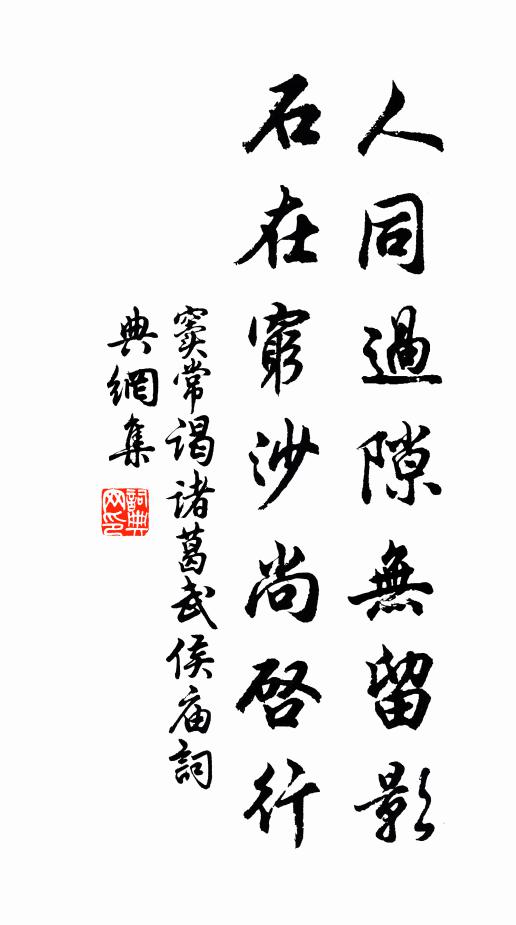 人同過隙無留影
石在窮沙尚啓行
窦常谒诸葛武侯庙詞
典網集
詞典網印